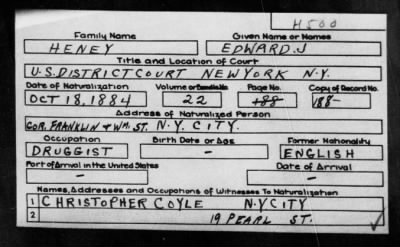 H500
Family Name Given Name or Names
HENEY EDWARD.J
Title and Location of Court
U.S. DISTRICT COURT NEW YORK N.Y.
Date of Naturalization Volume or Bundle No. Page No. Copy of Record No.
OCT 18, 1884 22 188 188-
Address of Naturalized Person
COR. FRANKLIN & WM. ST. N.Y. CITY.
Occupation Birth Date or Age Former Nationality
DRUGGIST - ENGLISH
Port of Arrival in the United States Date of Arrival
- -
Names, Addresses and Occupations of Witnesses To Naturalization
1 CHRISTOPHER COYLE N.Y CITY
2 19 PEARL ST.